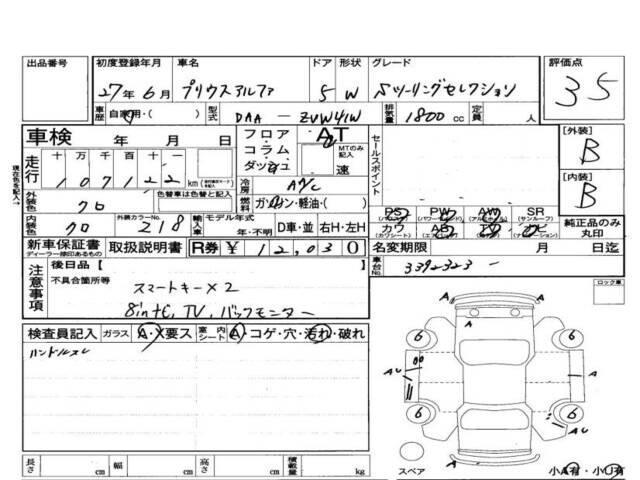 出品番号 初度登録年月 車名 ドア 形状 グレード 評価点
27年6月 プリウスアルファ 5 W Sツーリングセレクション 35
車歴 自家用・( ) 型式 DAA - ZVW41W 排気量 1800 cc 定員 人
車検 年 月 日 フロア コラム ダッシュ AT MTのみ記入 速 セールスポイント [外装] B
走行 十万千百十一 107122 km 冷房 A/C
現在色を記入 外装色 クロ 色替車は色替と記入 燃料 ガソリン・軽油・( ) [内装] B
PS PW AW SR
(パワーステアリング) (パワーウィンドウ) (アルミホイール) (サンルーフ)
内装色 クロ 外装カラーNo. 218 輸入車 モデル年式 年・不明 D車・並 右H・左H カワ AB TV ナビ 純正品のみ丸印
(カワシート) (エアバッグ) (ナビゲーション)
新車保証書 取扱説明書 R券 ¥ 12,030 名変期限 月 日迄
ディーラー捺印あるもの
注意事項 後日品【 】 車台No. 3392323 -
不具合箇所等
スマートキー×2
8inナビ, TV, バックモニター
ロック車
検査員記入 ガラス A・X要ス 室内 シート A・コゲ・穴・汚れ・破れ
ハンドルスレ
A
6 6
AU A
6 6
AU
A
長さ cm 幅 cm 高さ cm 積載量 kg スペア 小A有・小U有